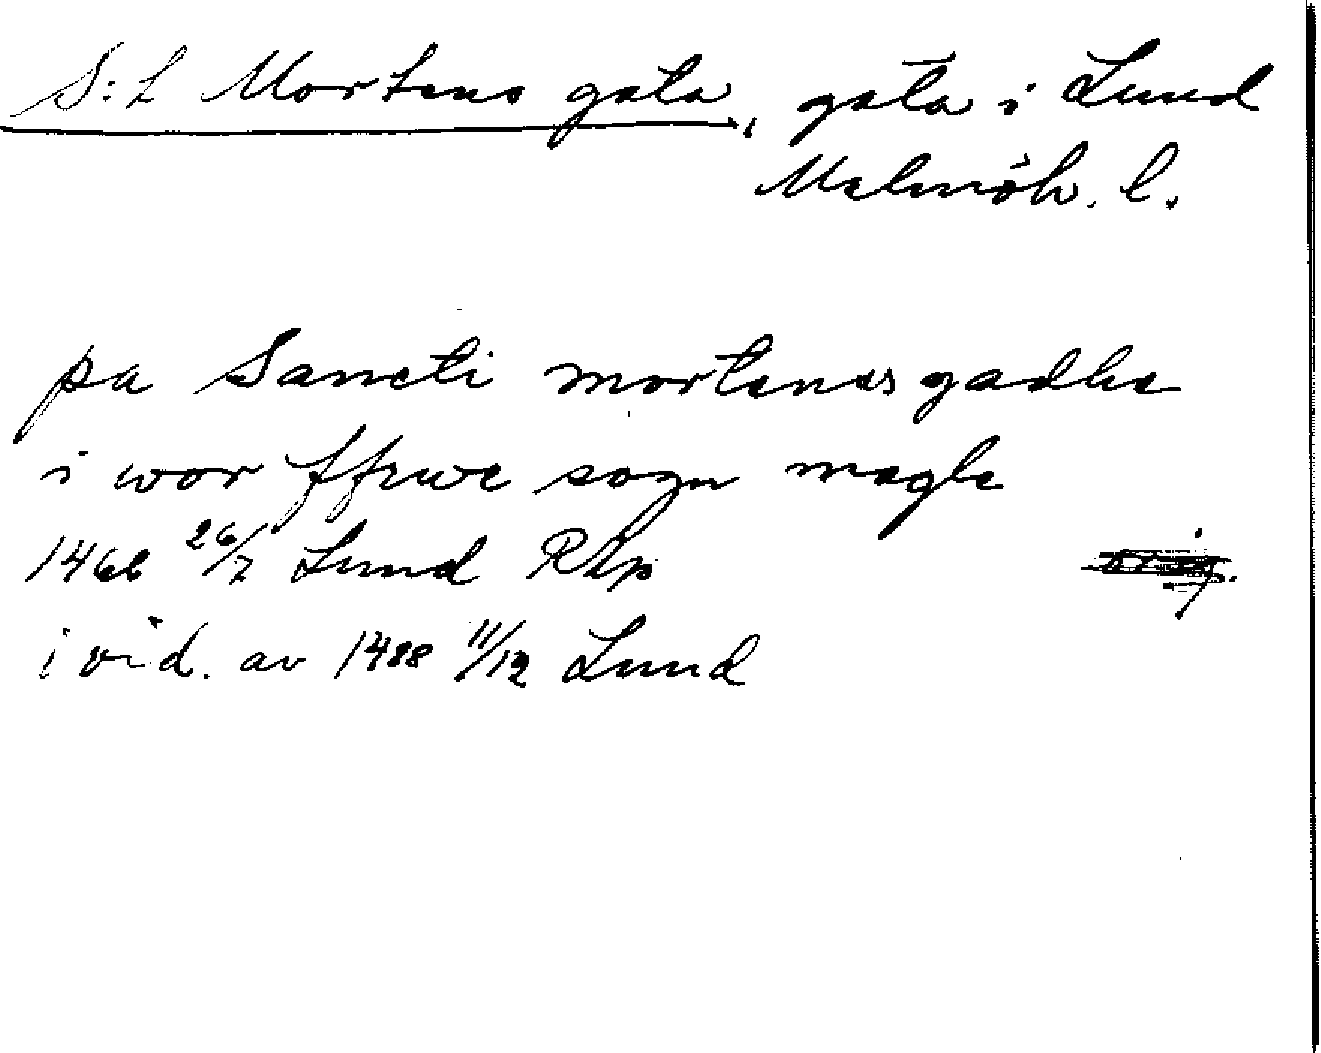 S:t Mortens gata, gata i Lund
Malmöh. l.
pa Sancti mortenes gadhe
i wor ffrwe sogn magle
1466 26/7 Lund RAp
i vid. av 1488 11/12 Lund